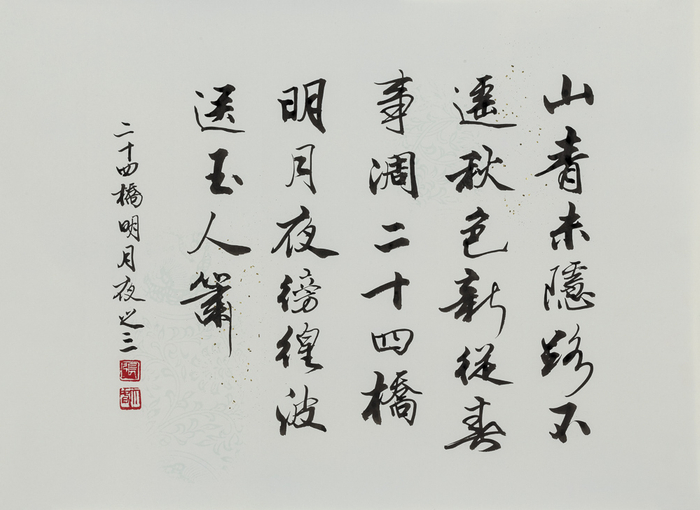 山青未隱路不
遥秋色新從春
事凋二十四橋
明月夜徬徨波
送玉人簫
二十四橋明月夜之三